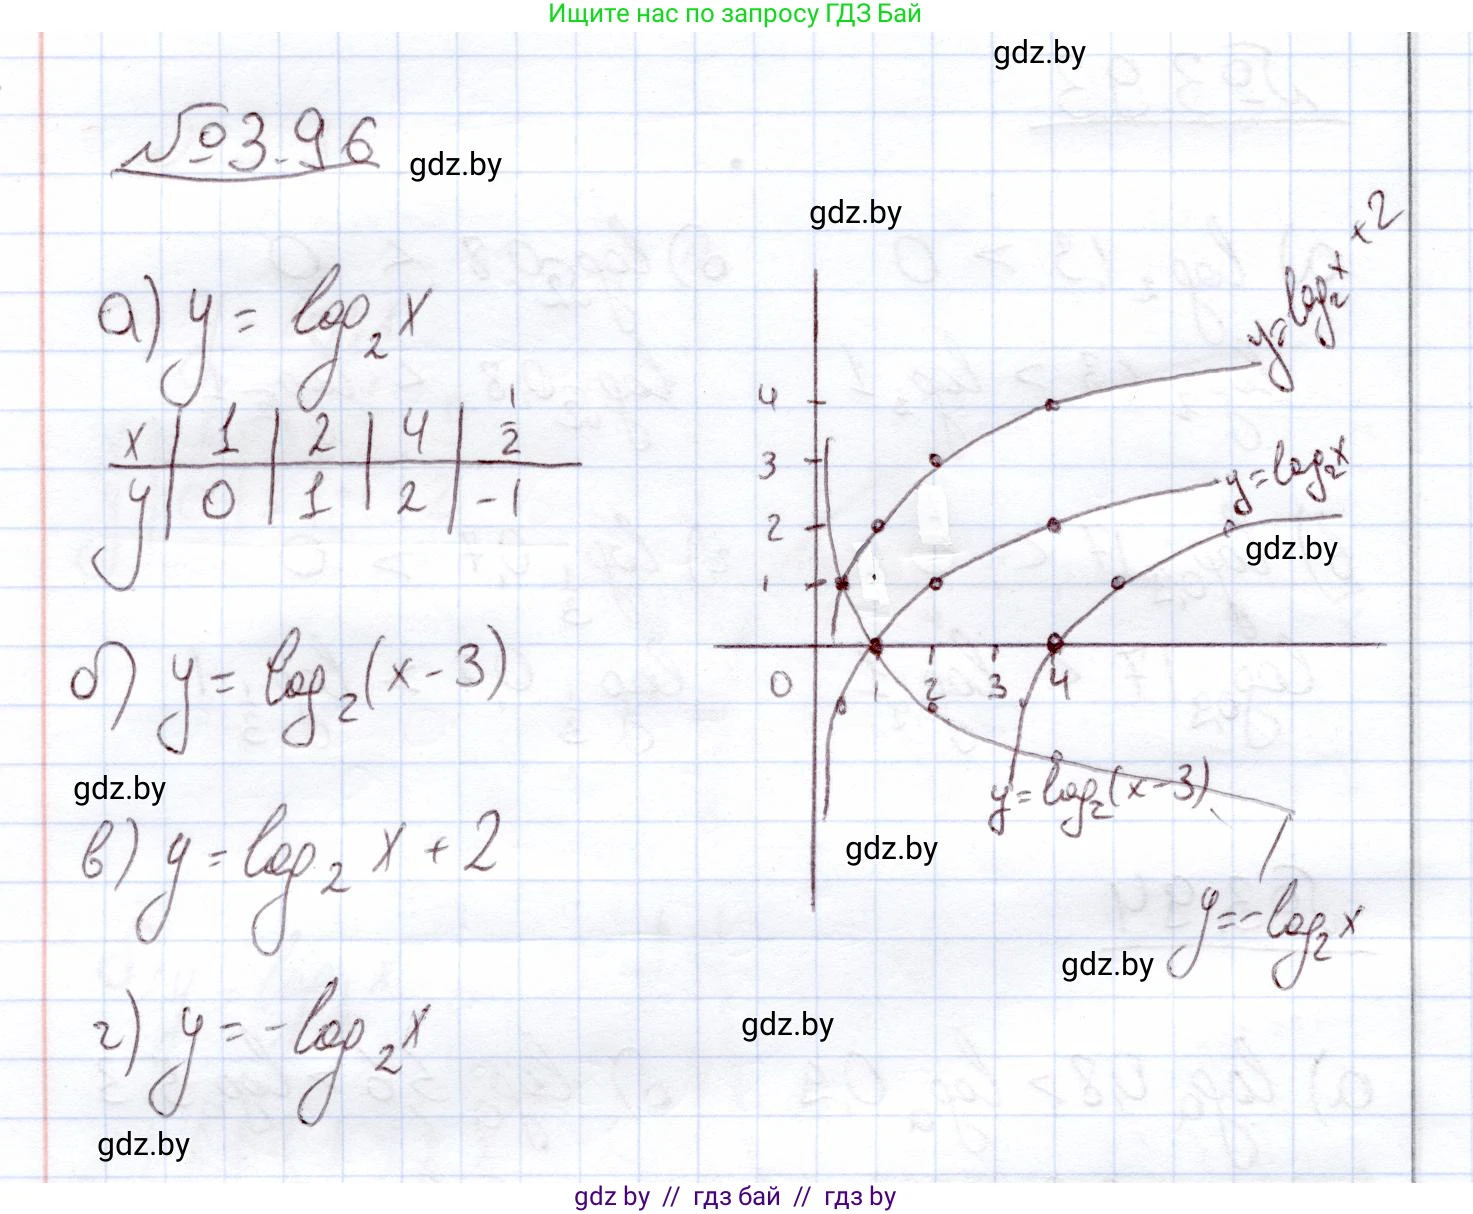 Ищите нас по запросу ГДЗ Бай
gdz.by
№3.96
gdz.by
gdz.by
а) y = log₂ x
x | 1 | 2 | 4 | 1/2
y | 0 | 1 | 2 | -1
б) y = log₂(x-3)
gdz.by
в) y = log₂ x + 2
г) y = -log₂ x
gdz.by
y = log₂ x + 2
4
3
y = log₂ x
2
gdz.by
1
0 1 2 3 4
y = log₂(x-3)
gdz.by
y = -log₂ x
gdz.by
gdz.by
gdz by // гдз бай // гдз by